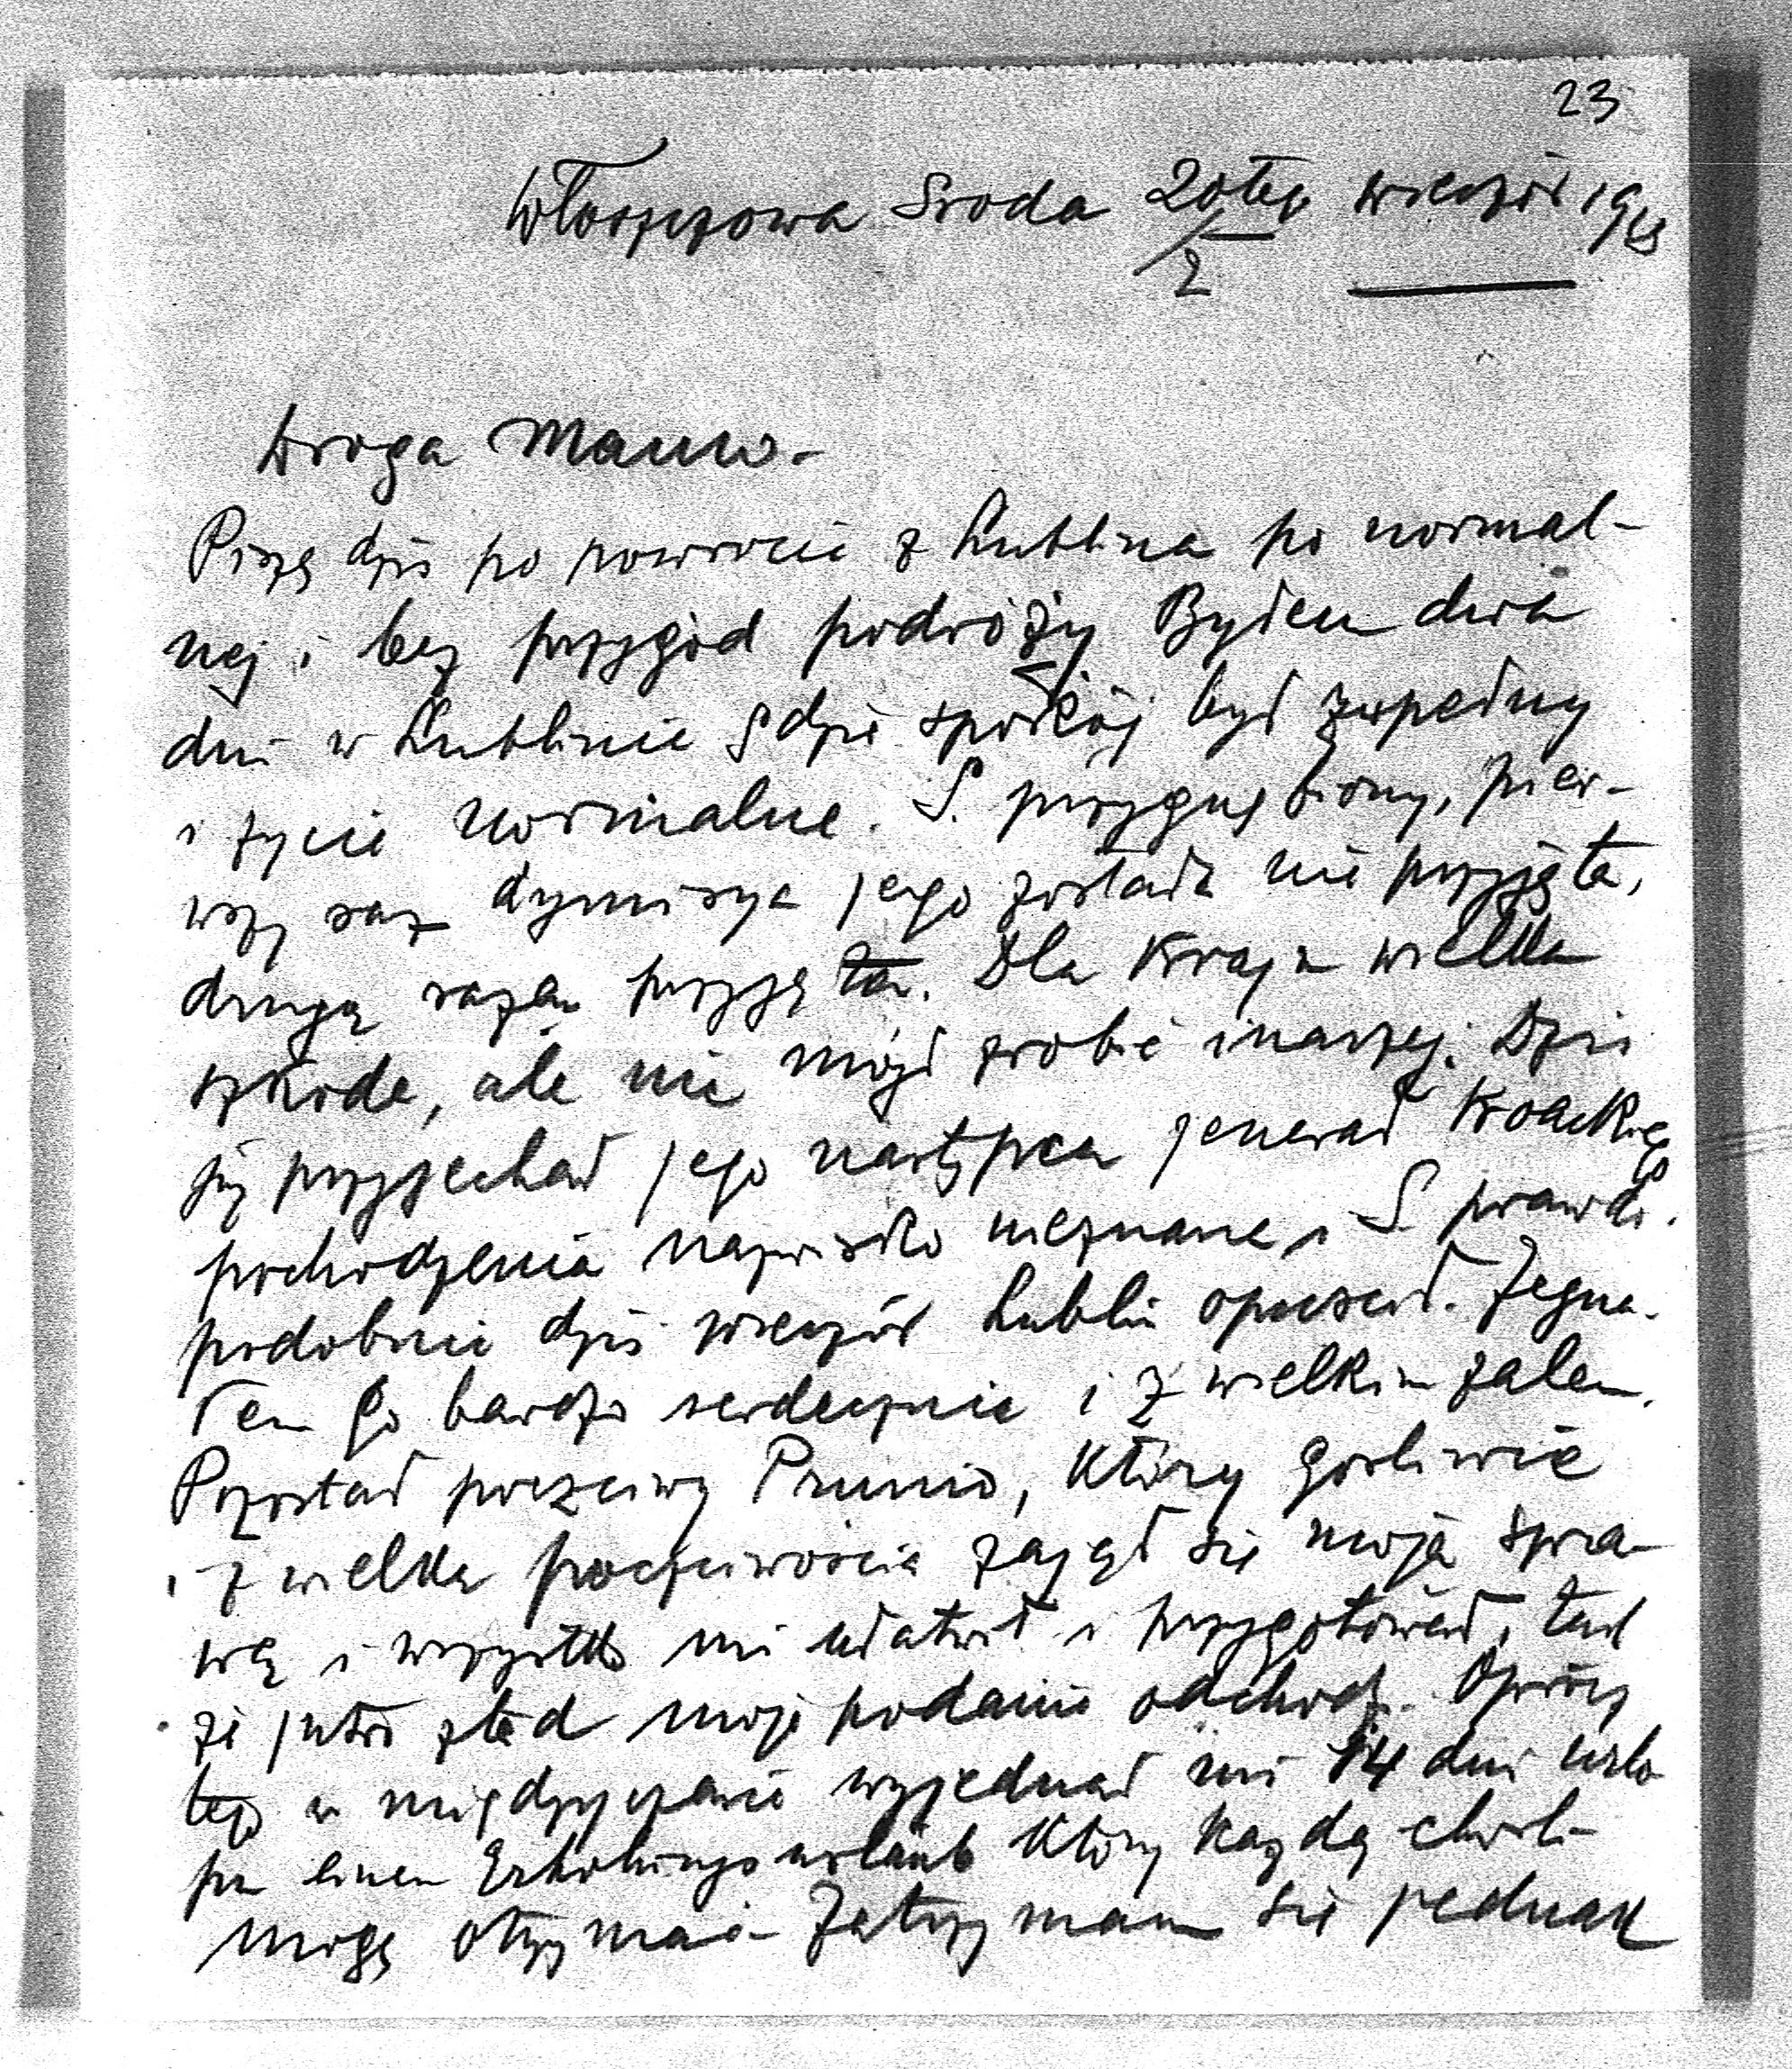 23
Włoszczowa Sroda 20tego wieczór 1918
2
Droga Mamo-
Piszę dziś po powrocie z Lublina po normal-
nej i bez przygód podróży Byłem dwa
dni w Lublinie gdzie spokój był zupełny
i życie normalne. S. przygnębiony, pier-
wszy raz dymisya jego została nie przyjęta,
drugą razą przyjęta. Dla Kraju wielka
szkoda, ale nie mógł zrobić inaczej. Dziś
przyjechał jego następca jenerał Kroackiego
pochodzenia nazwisko nieznane i S. prawdo-
podobnie dziś wieczór Lublin opuścił. Żegna-
łem go bardzo serdecznie i z wielkim żalem.
Pozostał poczciwy Prunio, który gorliwie
i z wielką poczciwością zajął się moją spra-
wą i wszystko mi ułatwił i przygotował, tak
że jutro ztąd moje podanie odchodzi. Oprócz
tego w międzyczasie wyjednał mi 14 dni urlo-
pu einen Erholungsurlaub który każdą chwili
mogę otrzymać- Zatrzymam się jednak